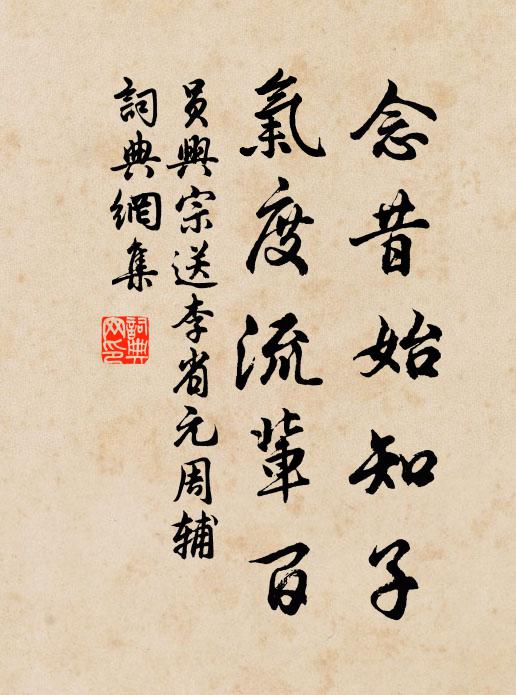 念昔始知子
氣度流輩百
員興宗送李省元周辅
詞典網集
詞典网印